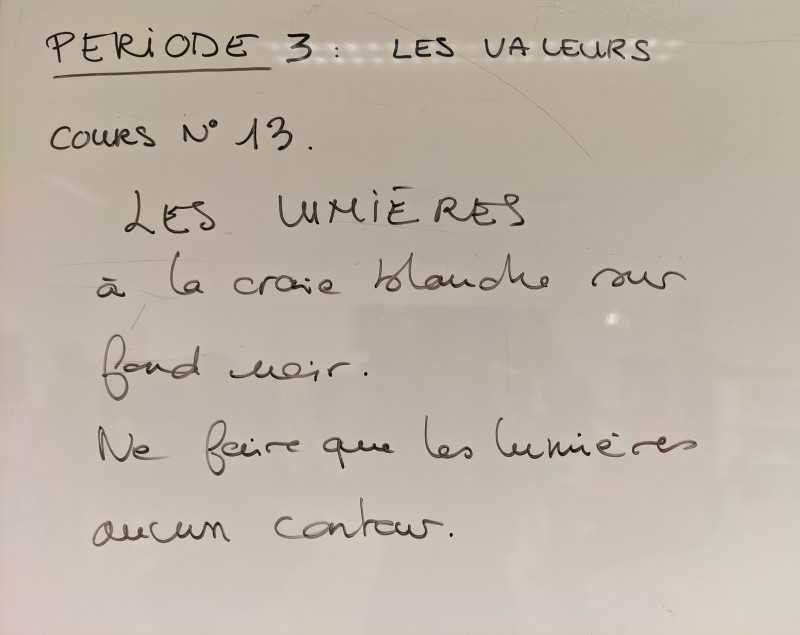 PERIODE 3 : LES VALEURS
COURS N° 13.
LES LUMIÈRES
à la craie blanche sur
fond noir.
Ne faire que les lumières
aucun contour.